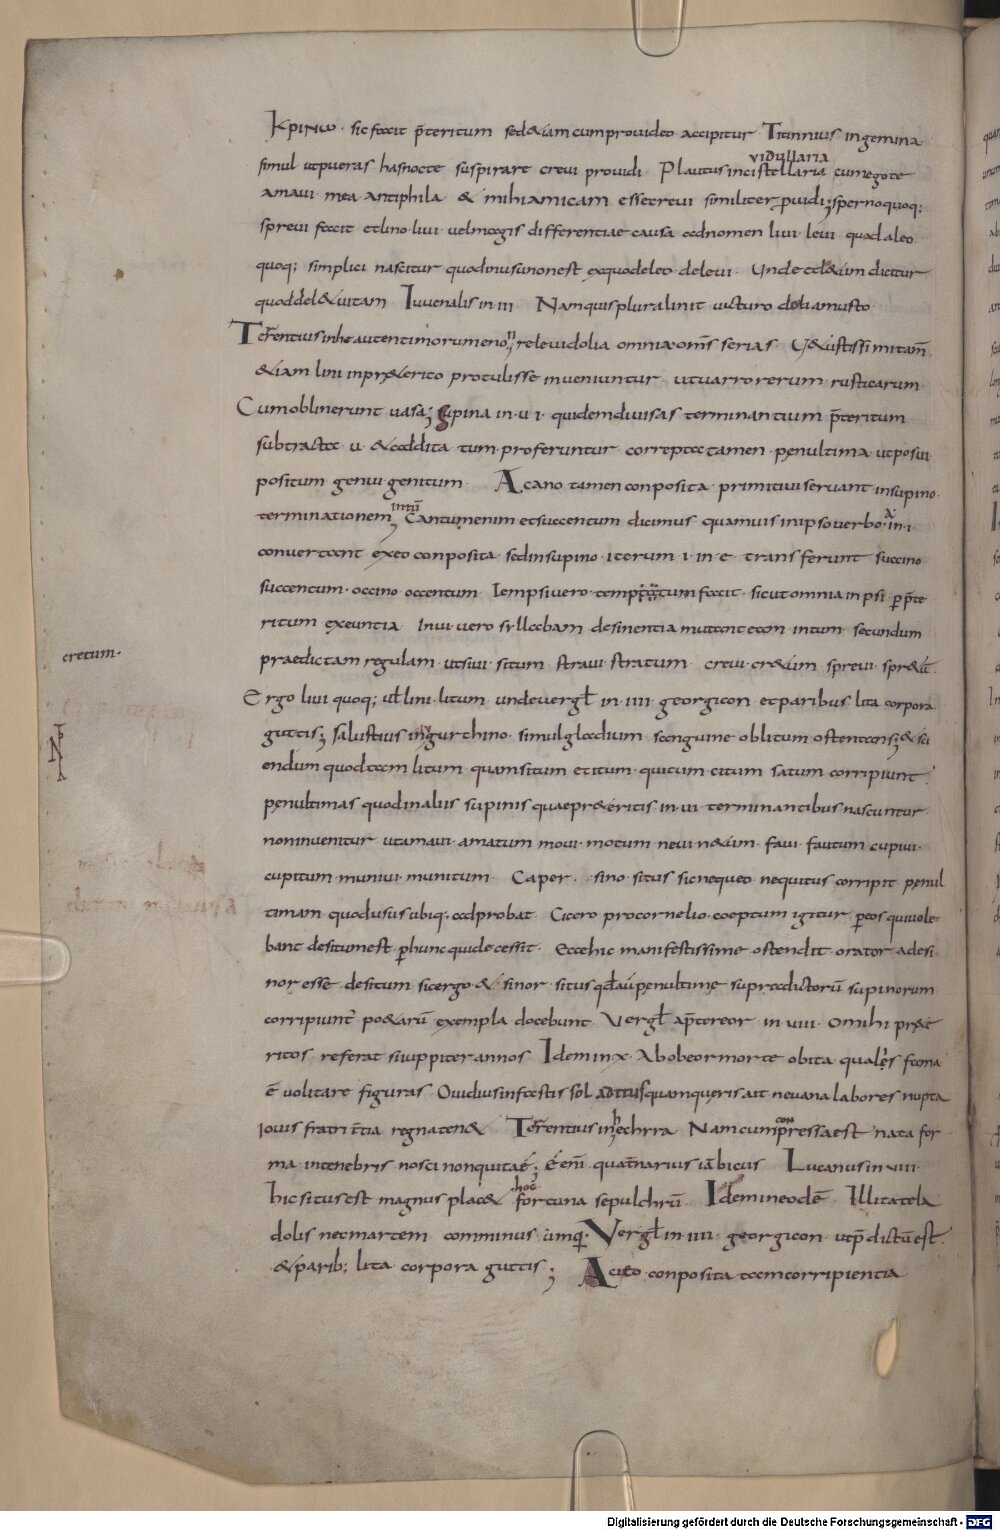 κρινω · sic facit p̄teritum sed &iam cum prouideo accipitur Titinnius in gemina
uidullaria
simul ut pueras has nocte suspirare creui prouidi Plautus in cistellaria cum ego te
amaui mea antiphila & mihi amicam esse creui similiter puidi; sperno quoq;
spreui facit et lino · liui uel magis differentiae causa ad nomen liui · leui quod a leo
quoq; simplici nascitur quod in usu non est ex quo deleo deleui · Unde et l&um dicitur
quod del& uitam Iuuenalis in III · Nam quis plura linit uicturo dolia musto ·
Terrentius in heautentimorumenon; releui dolia omnia oms̄ serias · U&ustissimi tam̄
&iam lini in pr&erito protulisse inueniuntur · ut uarro rerum rusticarum
Cum oblinerunt uasa; supina in · u · i · quidem diuisas terminantium p̄teritum
subtracta u & addita tum · proferuntur · correpta tamen · penultima ut posui
positum · genui genitum · A cano tamen conposita · primitiui seruant in supino ·
terminationem; Cantum enim et succentum dicimus · quamuis in ipso uerbo · a in · i ·
conuertant ex eo conposita · sed in supino · iterum · i · in · e · transferunt succino
succentum · occino occentum Iempsi uero · temptum facit · sicut omnia in psi · p p̄te
ritum exeuntia In ui uero syllabam desinentia mutant eam in tum · secundum
cretum·
praedictam regulam · ut siui · situm · straui stratum creui · cr&um · spreui · spr&ū ·
Ergo liui quoq; uł lini · litum · unde uergł in · IIII · georgicon et paribus lita corpora
guttis; salustius in iugurthino · simul gladium sanguine oblitum ostentans; & sci
endum quod tam litum quam situm et itum · quitum · citum satum corripiunt
penultimas quod in aliis supinis quae pr&eritis in · ui · terminantibus nascuntur
non inuenitur ut amaui · amatum moui · motum neui n&um · faui fautum cupiui ·
cupitum · muniui · munitum · Caper · sino · situs sic nequeo · nequitus corripit penul
timam quod usus ubiq; adprobat · Cicero pro cornelio · coeptum igitur p̄ eos qui uole
bant desitum est p̄ hunc qui decessit · Ecce hic manifestissime ostendit orator a desi
nor esse · desitum sic ergo & sinor · situs qđ aū penultimę supradictorū supinorum
corripiunt̄ po&arū exempla docebunt Vergł ap̄tereor in VIII · O mihi pr&e
ritos referat si iuppiter annos Idem in X A b obeor morte obita quales fama
ē uolitare figuras Ouidius in fastis sol aditus quam quęris ait ne uana labores nupta
iouis fratri t̄tia regna ten& Terrentius in echrra Nam cum conpressa est nata for
ma · in tenebris nosci non quita ē; Ē en̄i quat̄narius iābicus Lucanus in VIIII ·
hic situs est magnus plac& hoc fortuna sepulchrū Idem in eodē Illita tela
dolis nec martem comminus umq̄; Vergł in IIII georgicon ut p̄dictū est ·
& parib; lita corpora guttis; A cieo conposita tam corripientia
Digitalisierung gefördert durch die Deutsche Forschungsgemeinschaft - DFG